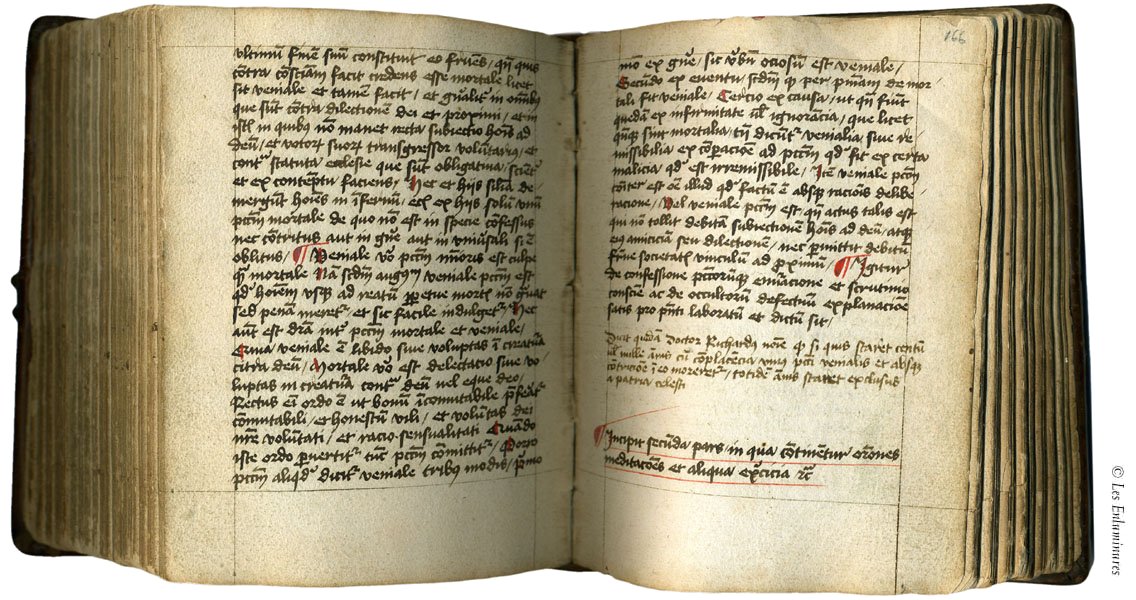 ultimum finē suū constituit eo fruēs / qñ quis
cōtra cōsciam facit credens esse mortale licet
sit veniale et tamen facit / et gñalit in omībus
que sūt cōtra dilectionem dei et proximi / et in
istis in quibus nō manet recta subiectio hoīs ad
deū / et votorum suorum transgressor voluntarius / et
contra statuta ecclesie que sūt obligativa / sciēt
et ex contemptu faciens / Hec et hijs silīa de=
mergūt hoīes in īfernū / et ex hijs solū unū
pctm mortale de quo nō est in specie cōfessus
nec cōtritus aut in gñe aut in uniūsali si ē
oblitus / ¶ Veniale vo pctm minoris est culpe
qz mortale Nā scdm augustinum / veniale pctm est
qd hoīem usqz ad reatū ppetue mortis nō gūat
sed penā meretur / et sic facile indulgetur / Hec
aūt est dr̄a inter pctm mortale et veniale /
Quia veniale ē libido sive voluptas ī creatura
citra deū / Mortale vo est delectacio sive vo=
luptas in creatura contra deū vel eque deo /
Rectus enī ordo ē ut bonū īcōmutabile pferat
cōmutabili / et honestū utili / et voluntas dei
nr̄e volūtati / et racio sensualitati Quando
iste ordo pvertitur tūc pctm cōmittitur / Porro
pctm aliqd dicitur veniale tribus modis / p̄mo
166
mō ex gñe / sic v̄bū ociosū est veniale /
Secūdo ex eventu / scdm qz per pniam de mor=
tali fit veniale / Tercio ex causa / ut qñ fiūt
quedā ex infirmitate vl ignorācia / que licet
qñqz sint mortalia / tñ dicūtur venialia sive re=
missibilia ex cōpacione ad pctm qd fit ex certa
malicia / qd est irremissibile / Itē veniale pctm
cōiter est oē illud qd factū ē absqz racionis delibe=
racione / Vel veniale pctm est / qñ actus talis est
qui nō tollit debitā subiectionē hoīs ad deū / atqz
eius amiciciā seu dilectionē / nec pmittit debitū
frñe societatis vinculū ad proximū / ¶ Igitur
de confessione pctorumqz emūacione et scrutinio
conscie ac de occultorū defectuū explanacioē
satis pro pñti laboratū et dictū sit /
Dicit quidā doctor Richardus noīe qz si quis staret centū
vl mille ānis cū cōplacēcia unius pcti venialis et absqz
cōtricioē ī eo moreretur / totidē ānis staret exclusus
a patria celesti
¶ Incipit secūda pars in qua cōtinentur orōnes
meditacōes et aliqua exercicia etc
© Les Enluminures